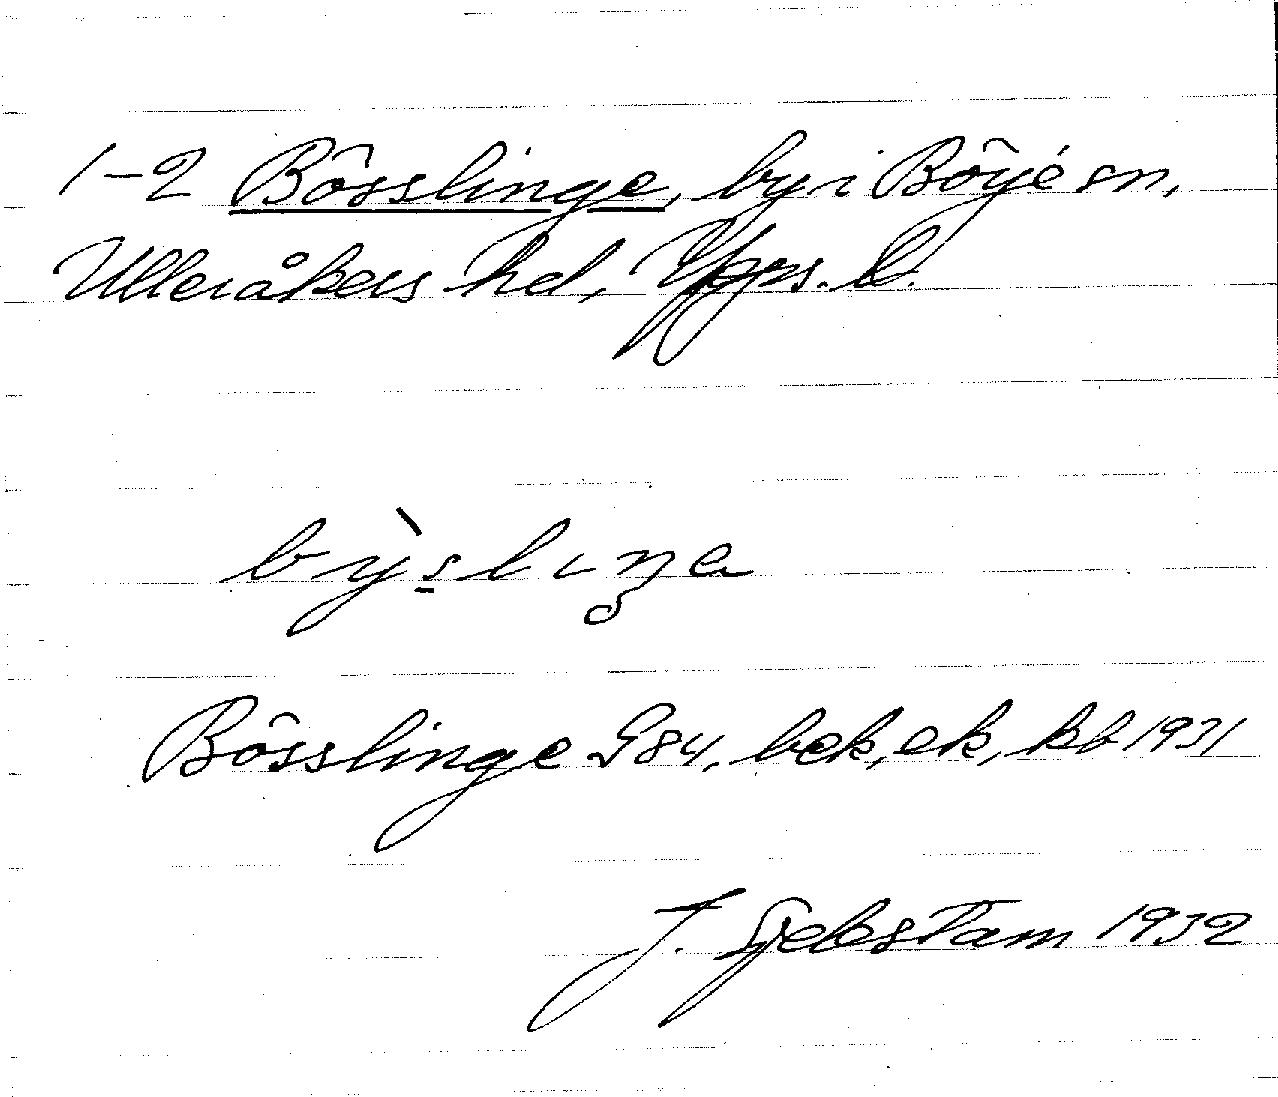 1–2 Bösslinge, by i Böje sn,
Ulleråkers hd, Upps. l.
by̓slıŋa
Bösslinge G84, bek, ek, kb 1931
J. Sjebstam 1932